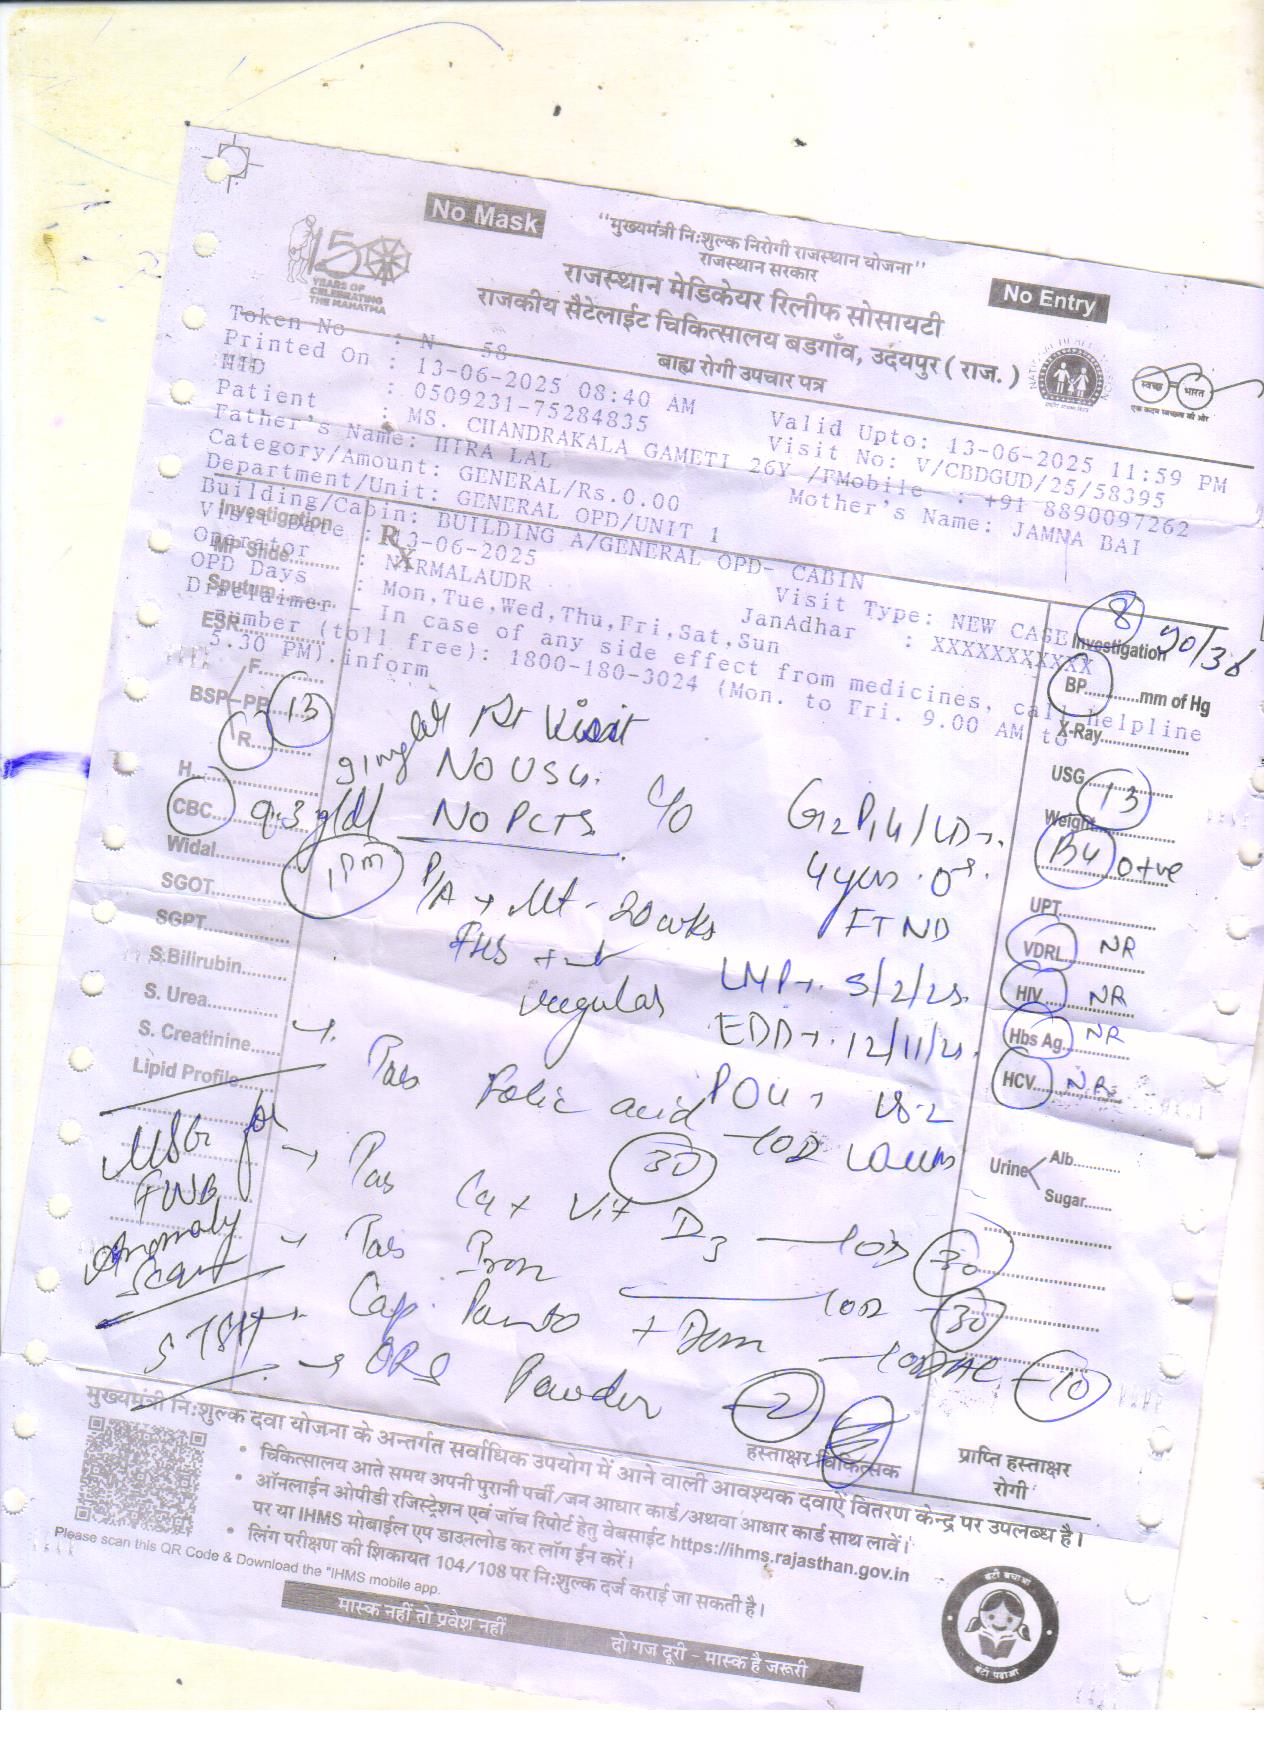 No Mask
"मुख्यमंत्री निःशुल्क निरोगी राजस्थान योजना"
राजस्थान सरकार
No Entry
150
YEARS OF
CELEBRATING
THE MAHATMA
राजस्थान मेडिकेयर रिलीफ सोसायटी
राजकीय सैटेलाईट चिकित्सालय बडगाँव, उदयपुर ( राज. )
बाह्य रोगी उपचार पत्र
स्वच्छ भारत
एक कदम स्वच्छता की ओर
Token No : N 58
Printed On : 13-06-2025 08:40 AM Valid Upto: 13-06-2025 11:59 PM
HID : 0509231-75284835 Visit No: V/CBDGUD/25/58395
Patient : MS. CHANDRAKALA GAMETI 26Y /F Mobile : +91 8890097262
Father's Name: HIRA LAL Mother's Name: JAMNA BAI
Category/Amount: GENERAL/Rs.0.00
Department/Unit: GENERAL OPD/UNIT 1
Building/Cabin: BUILDING A/GENERAL OPD- CABIN
Visit Date : 13-06-2025 Visit Type: NEW CASE
Operator : NIRMALAUDR JanAadhar : XXXXXXXXXXX
OPD Days : Mon,Tue,Wed,Thu,Fri,Sat,Sun
Disclaimer - In case of any side effect from medicines, call helpline
number (toll free): 1800-180-3024 (Mon. to Fri. 9.00 AM to
5.30 PM).inform
Investigation
Rx
MP Slide
Sputum
ESR
BSP F.
PP
R
H
CBC 9.3 g/dl
Widal
SGOT
SGPT
S.Bilirubin
S. Urea
S. Creatinine
Lipid Profile
Visit
NO USG.
NO PCTS
C/O
4 yrs
P/A → 20 wks
FTND
irregular
LMP → 5/2/25
EDD → 12/11/25
Tab Folic acid 30
Tab Ca + Vit D3 — 1OD 30
Tab Iron — 1OD 30
Cap. Panto + Dom — 1OD AC — 10
→ ORS Powder — 2
USG for
FWB
Anomaly
Scan
S. TSH
Investigation
8 90/36
BP mm of Hg
X-Ray
USG
Weight
B4 O+ve
UPT
VDRL NR
HIV NR
Hbs Ag NR
HCV NR
Urine Alb
Sugar
हस्ताक्षर चिकित्सक
प्राप्ति हस्ताक्षर
रोगी
मुख्यमंत्री निःशुल्क दवा योजना के अन्तर्गत सर्वाधिक उपयोग में आने वाली आवश्यक दवाऐं वितरण केन्द्र पर उपलब्ध है।
• चिकित्सालय आते समय अपनी पुरानी पर्ची/जन आधार कार्ड/अथवा आधार कार्ड साथ लावें।
• ऑनलाईन ओपीडी रजिस्ट्रेशन एवं जाँच रिपोर्ट हेतु वेबसाईट https://ihms.rajasthan.gov.in
पर या IHMS मोबाईल एप डाउनलोड कर लॉग ईन करें।
• लिंग परीक्षण की शिकायत 104/108 पर निःशुल्क दर्ज कराई जा सकती है।
Please scan this QR Code & Download the "IHMS mobile app.
मास्क नहीं तो प्रवेश नहीं दो गज दूरी - मास्क है जरूरी
बेटी बचाओ
बेटी पढ़ाओ